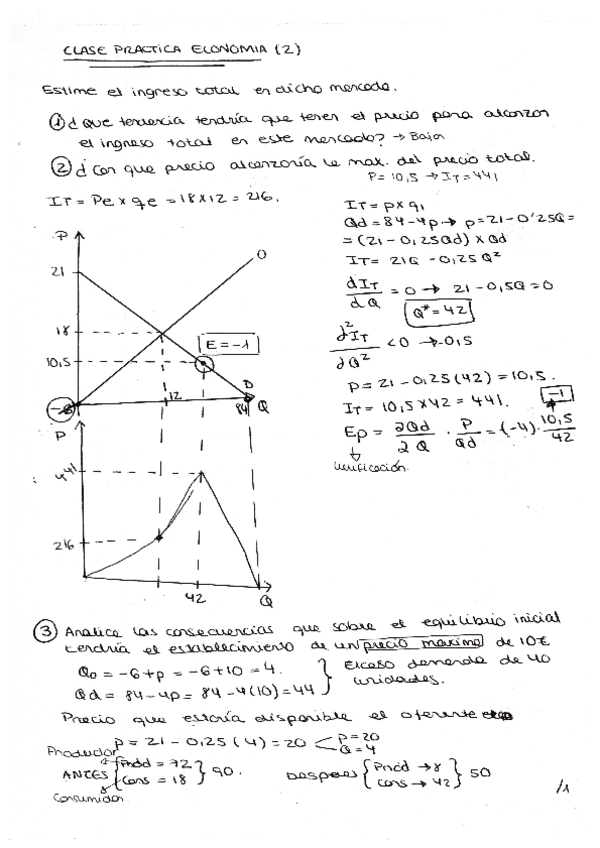 CLASE PRACTICA ECONOMIA (2)
Estime el ingreso total en dicho mercado.
① ¿ Que tendencia tendría que tener el precio para alcanzar
el ingreso total en este mercado? → Bajar
② ¿ Con que precio alcanzaría le max. del precio total.
P = 10,5 → IT = 441
IT = Pe x qe = 18 x 12 = 216.
IT = p x q
Qd = 84 - 4p → p = 21 - 0'25Q =
= (21 - 0,25Qd) x Qd
IT = 21Q - 0,25 Q²
dIT/dQ = 0 → 21 - 0,5Q = 0
Q* = 42
d²IT/∂Q² < 0 → -0,5
P = 21 - 0,25 (42) = 10,5.
IT = 10,5 x 42 = 441.
-1
Ep = ∂Qd/∂Q · P/Qd = (-4) · 10,5/42
Verificación
P
21
18
10,5
-6
O
E = -1
D
12
84
Q
P
441
216
42
Q
③ Analice las consecuencias que sobre el equilibrio inicial
tendría el establecimiento de un precio maximo de 10€
Qo = -6 + p = -6 + 10 = 4.
Qd = 84 - 4p = 84 - 4(10) = 44
Exceso demanda de 40
unidades.
Precio que estaría disponible el oferente
P = 21 - 0,25 (4) = 20
P = 20
Q = 4
Productor
ANTES { Prod = 72
Cons = 18 } 90.
Consumidor
DESPUES { Prod → 8
Cons → 42 } 50
/1